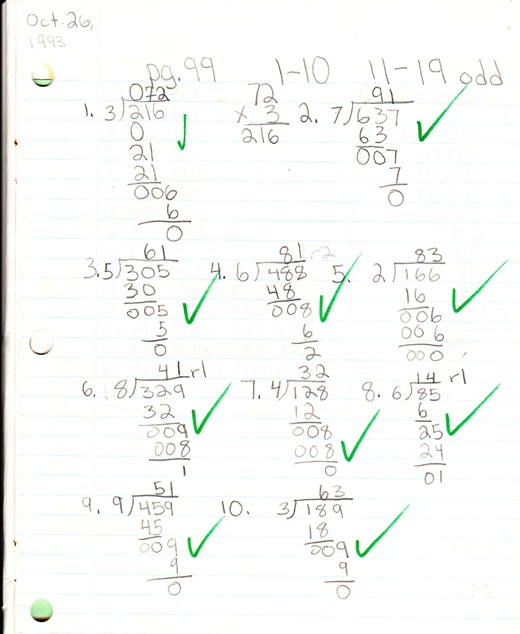 Oct. 26,
1993
pg. 99 1-10 11-19 odd
072 72 91
1. 3)216 x 3 2. 7)637
0 216 63
21 007
21 7
006 0
6
0
61 81 r2 83
3. 5)305 4. 6)488 5. 2)166
30 48 16
005 008 006
5 6 006
0 2 000
41 r1 32 14 r1
6. 8)329 7. 4)128 8. 6)85
32 12 6
009 008 25
008 008 24
1 0 01
51 63
9. 9)459 10. 3)189
45 18
009 009
9 9
0 0